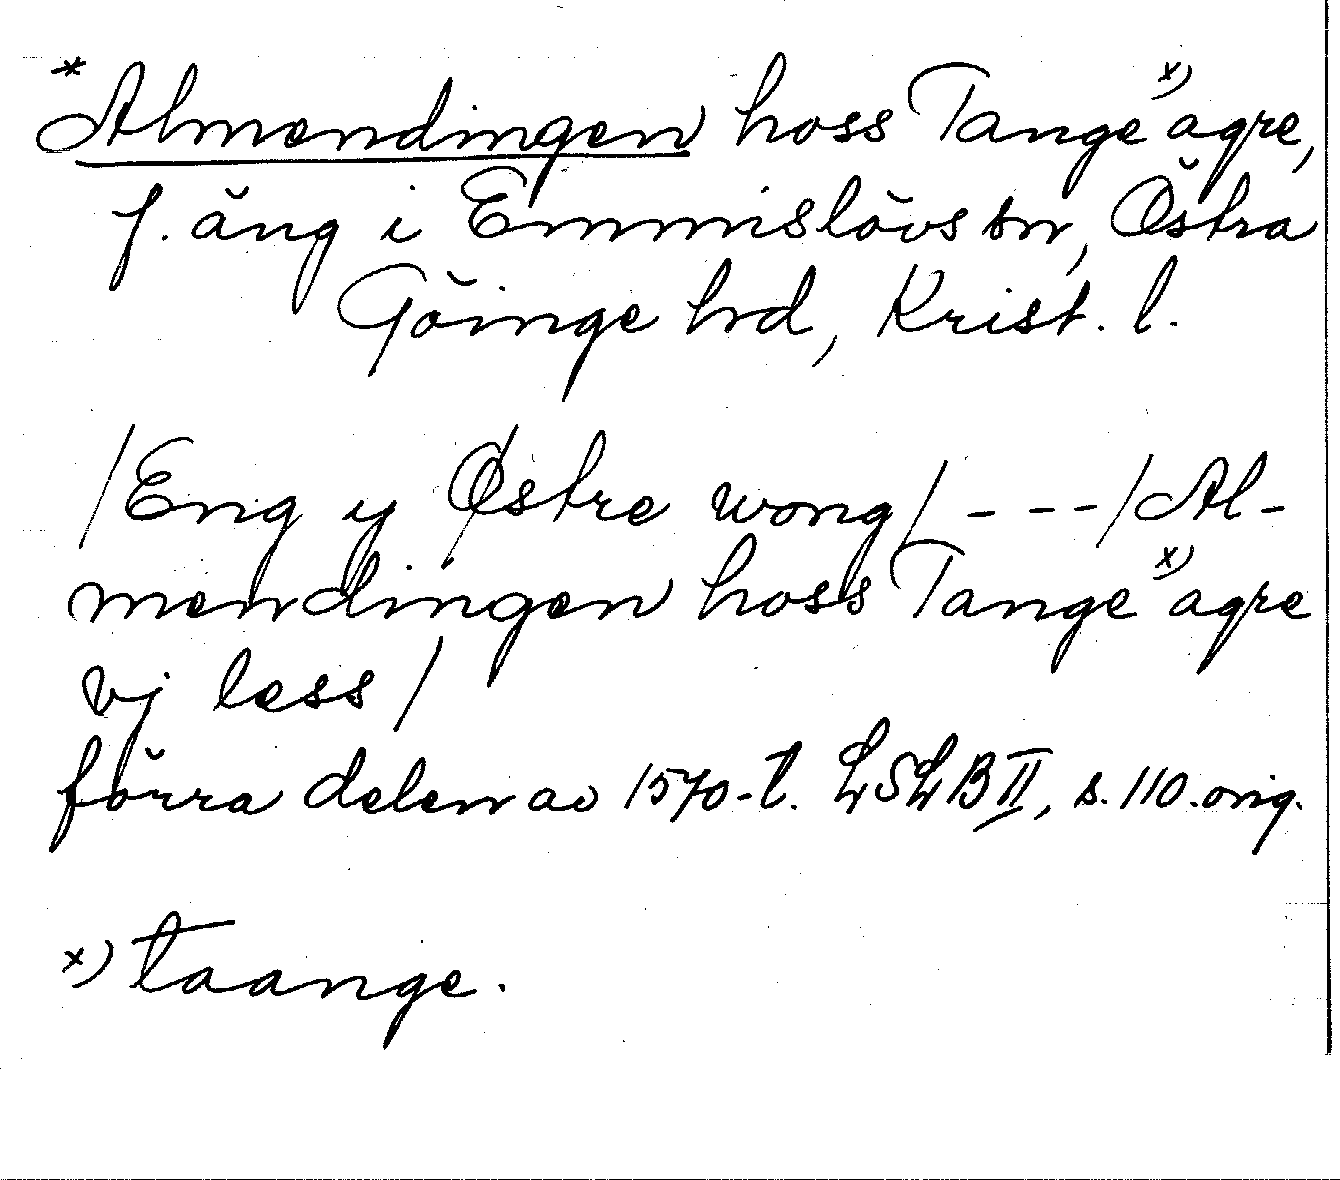 *Almendingen hoss Tange x) agre,
f. äng i Emmislövs sn, Östra
Göinge hd, Krist. l.
/Eng y Østre wong/ - - - /Al-
mendingen hoss Tange x) agre
vj less/
förra delen av 1570-t. LSLB II, s. 110. orig.
x) taange.